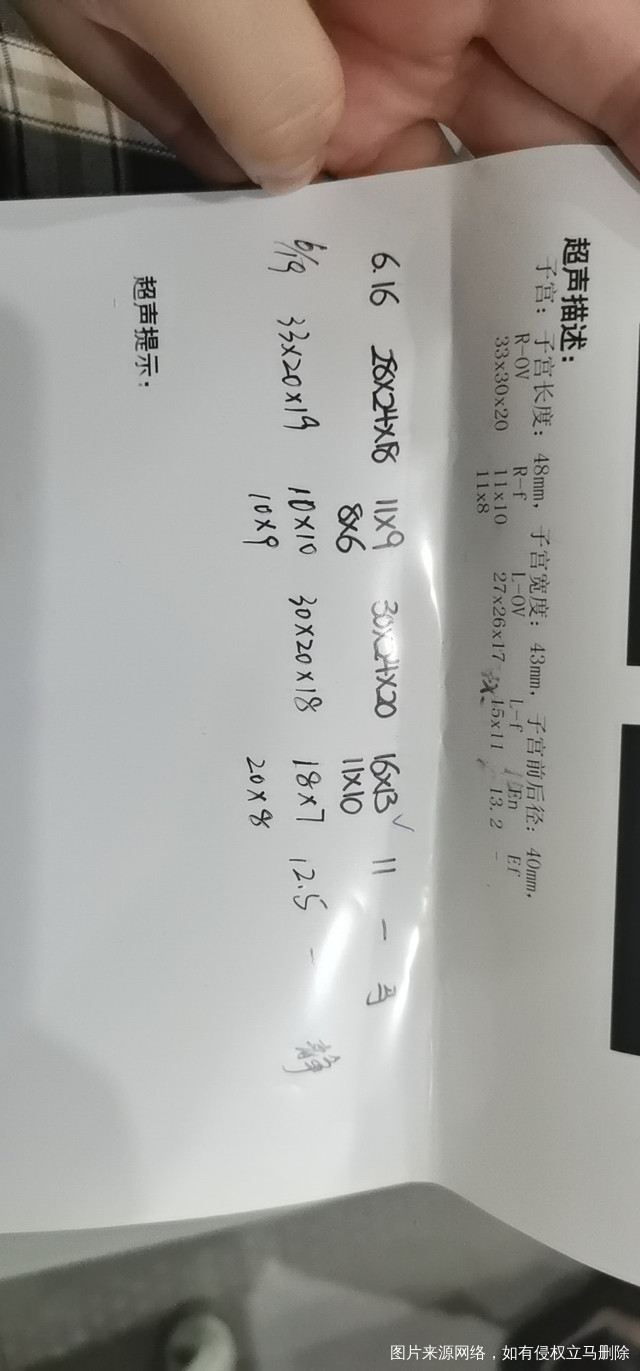 超声描述：
子宫： 子宫长度： 48mm， 子宫宽度： 43mm， 子宫前后径： 40mm，
R-OV R-f L-OV L-f En Ef
33x30x20 11x10 27x26x17 15x11 13.2 -
11x8
6.16 28x24x18 11x9 30x24x20 16x13 ✓ 11 -
8x6 11x10
6/19 33x20x19 10x10 30x20x18 18x7 12.5 -
10x9 20x8
超声提示：
图片来源网络，如有侵权立马删除